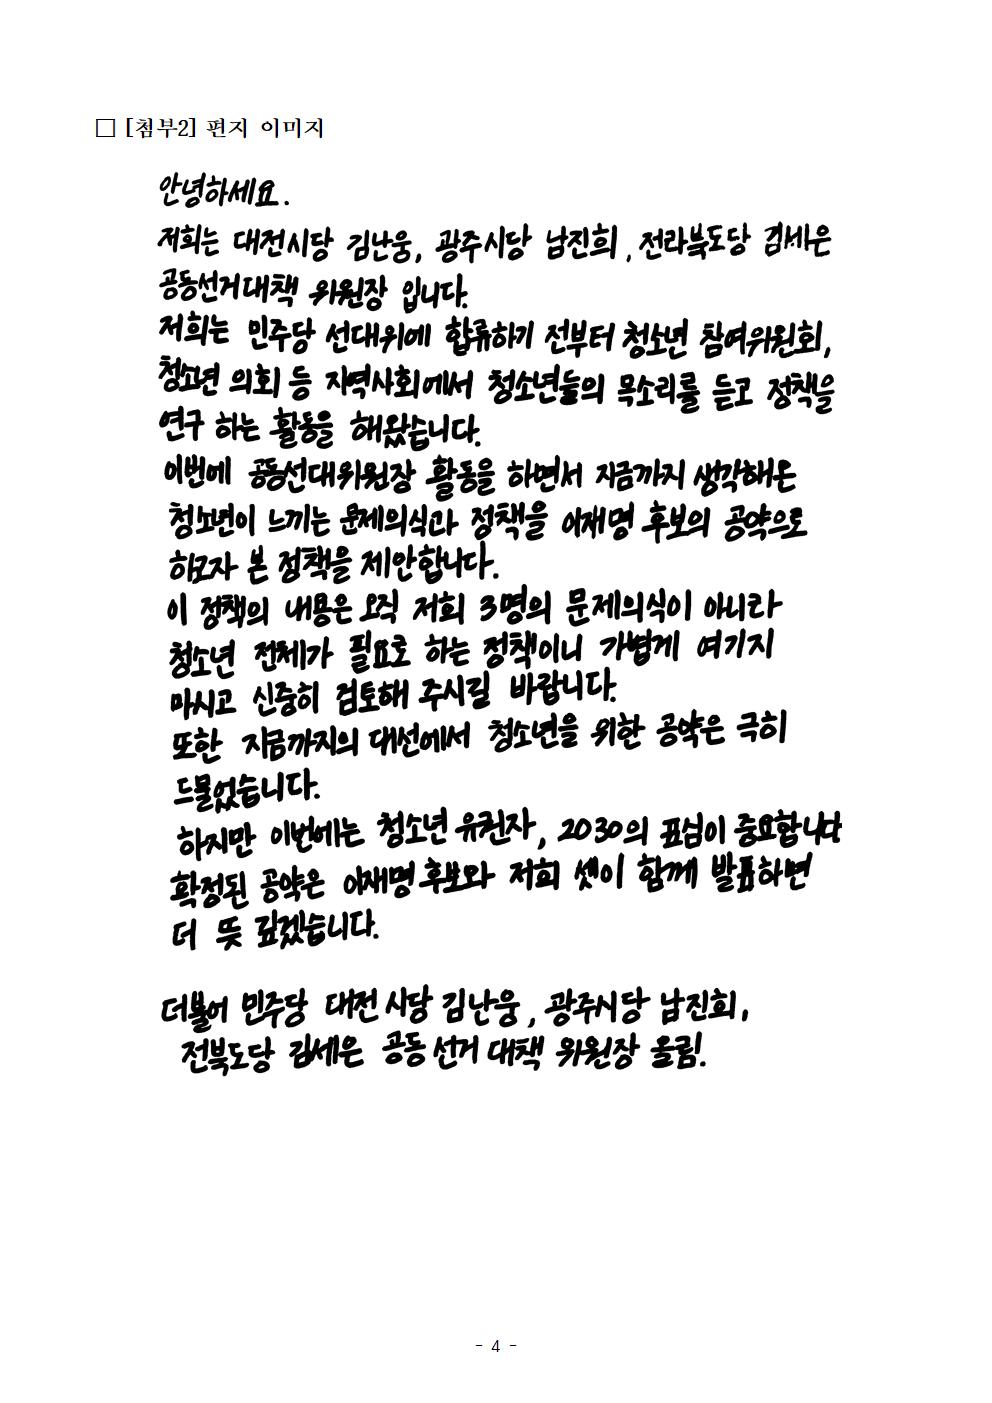 □ [첨부2] 편지 이미지
안녕하세요.
저희는 대전시당 김난웅, 광주시당 남진희, 전라북도당 김세은
공동선거대책 위원장 입니다.
저희는 민주당 선대위에 합류하기 전부터 청소년 참여위원회,
청소년 의회 등 지역사회에서 청소년들의 목소리를 듣고 정책을
연구 하는 활동을 해왔습니다.
이번에 공동선대위원장 활동을 하면서 지금까지 생각해온
청소년이 느끼는 문제의식과 정책을 이재명 후보의 공약으로
하고자 본 정책을 제안합니다.
이 정책의 내용은 오직 저희 3명의 문제의식이 아니라
청소년 전체가 필요로 하는 정책이니 가볍게 여기지
마시고 신중히 검토해 주시길 바랍니다.
또한 지금까지의 대선에서 청소년을 위한 공약은 극히
드물었습니다.
하지만 이번에는 청소년 유권자, 2030의 표심이 중요합니다
확정된 공약은 이재명 후보와 저희 셋이 함께 발표하면
더 뜻 깊겠습니다.
더불어 민주당 대전 시당 김난웅, 광주시당 남진희,
전북도당 김세은 공동 선거 대책 위원장 올림.
- 4 -